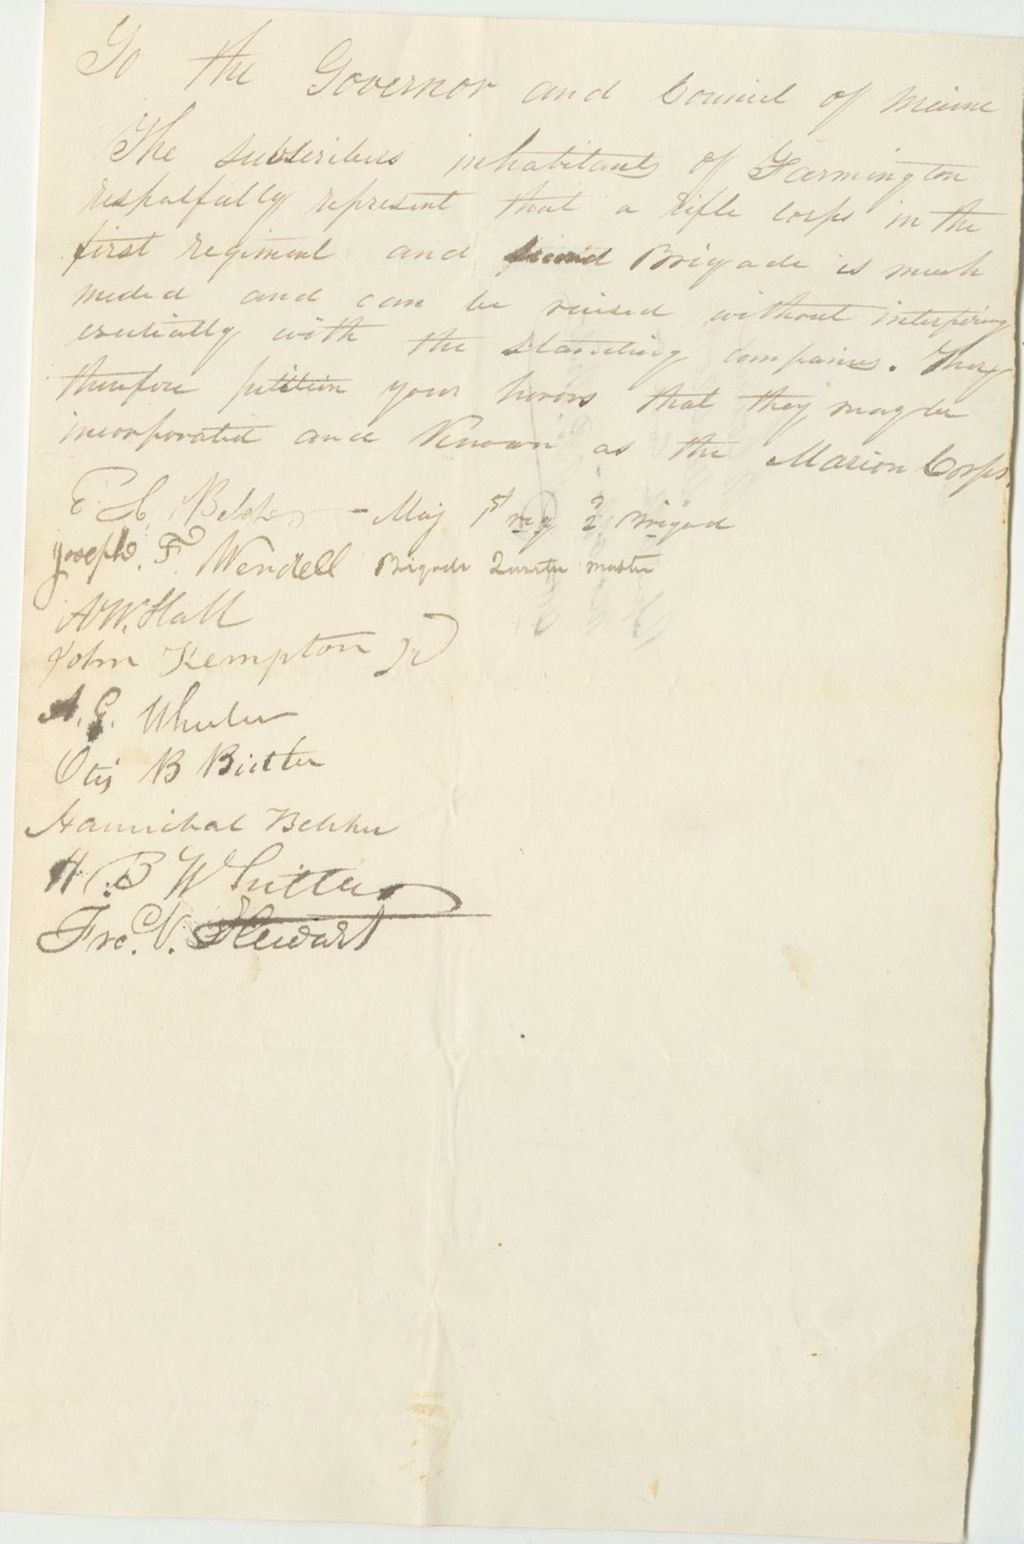 To the Governor and Council of Maine
The subscribers inhabitants of Farmington
respectfully represent that a rifle corps in the
first regiment and second Brigade is much
needed and can be raised without interfering
with the standing companies. They
therefore petition your honors that they may be
incorporated and Known as the Marion Corps.
Belcher - Maj 1st reg 2 Brigade
Joseph. F. Wendell Brigade Quarter master
A W. Hall
John Kempton Jr
A. G. Wheeler
Otis B Butler
Hannibal Belcher
H. B Whittier
V. Stewart